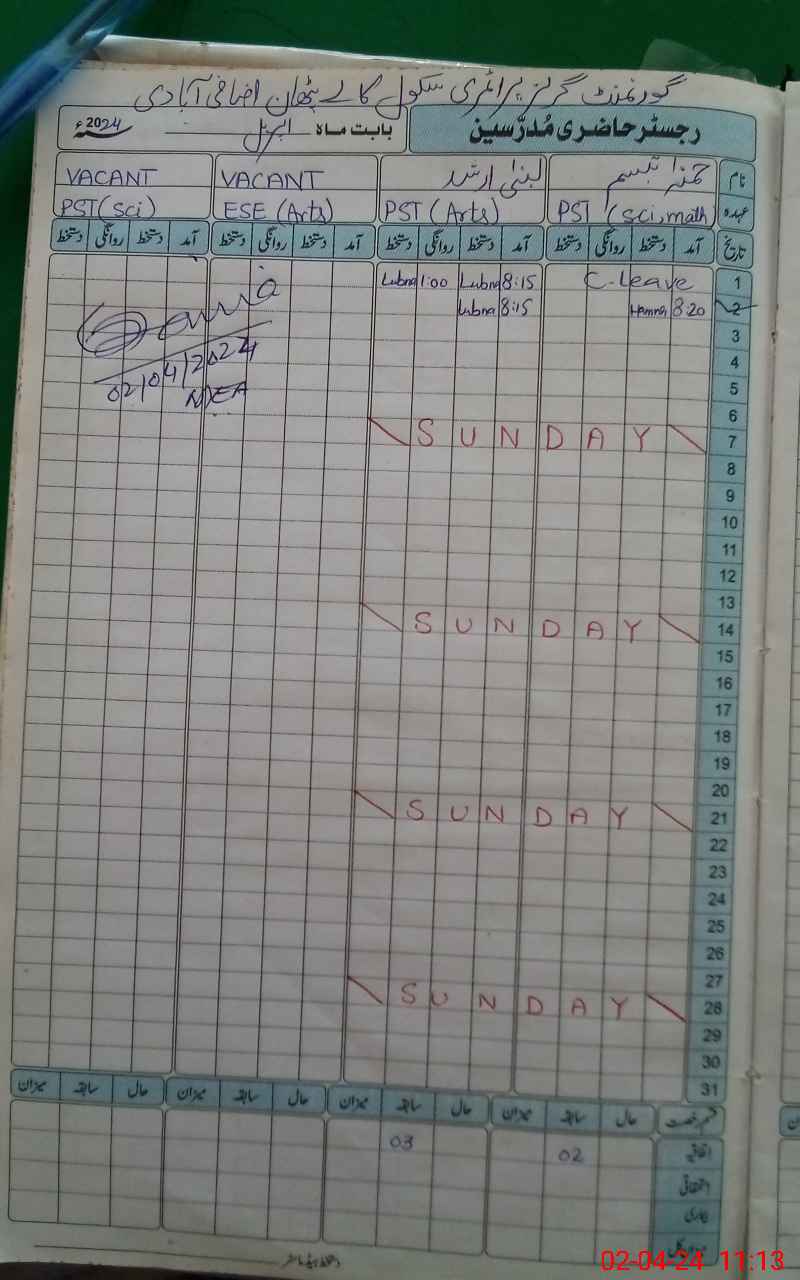 گورنمنٹ گرلز پرائمری سکول کالے پٹھان اضافی آبادی
رجسٹر حاضری مُدرّسین
بابت ماہ اپریل 2024ء
نام حمنہ تبسم لبنیٰ ارشد VACANT VACANT
عہدہ PST (Sci, math) PST (Arts) ESE (Arts) PST (Sci)
تاریخ آمد دستخط روانگی دستخط آمد دستخط روانگی دستخط آمد دستخط روانگی دستخط آمد دستخط روانگی دستخط
1 C. Leave 8:15 Lubna 1:00 Lubna
2 8:20 Hamna 8:15 Lubna
3
02/04/2024
4
5
6
7 SUNDAY
8
9
10
11
12
13
14 SUNDAY
15
16
17
18
19
20
21 SUNDAY
22
23
24
25
26
27
28 SUNDAY
29
30
31
قسم رخصت حال سابقہ میزان حال سابقہ میزان حال سابقہ میزان حال سابقہ میزان
اتفاقیہ 02 03
استحقاقی
بیماری
02-04-24 11:13